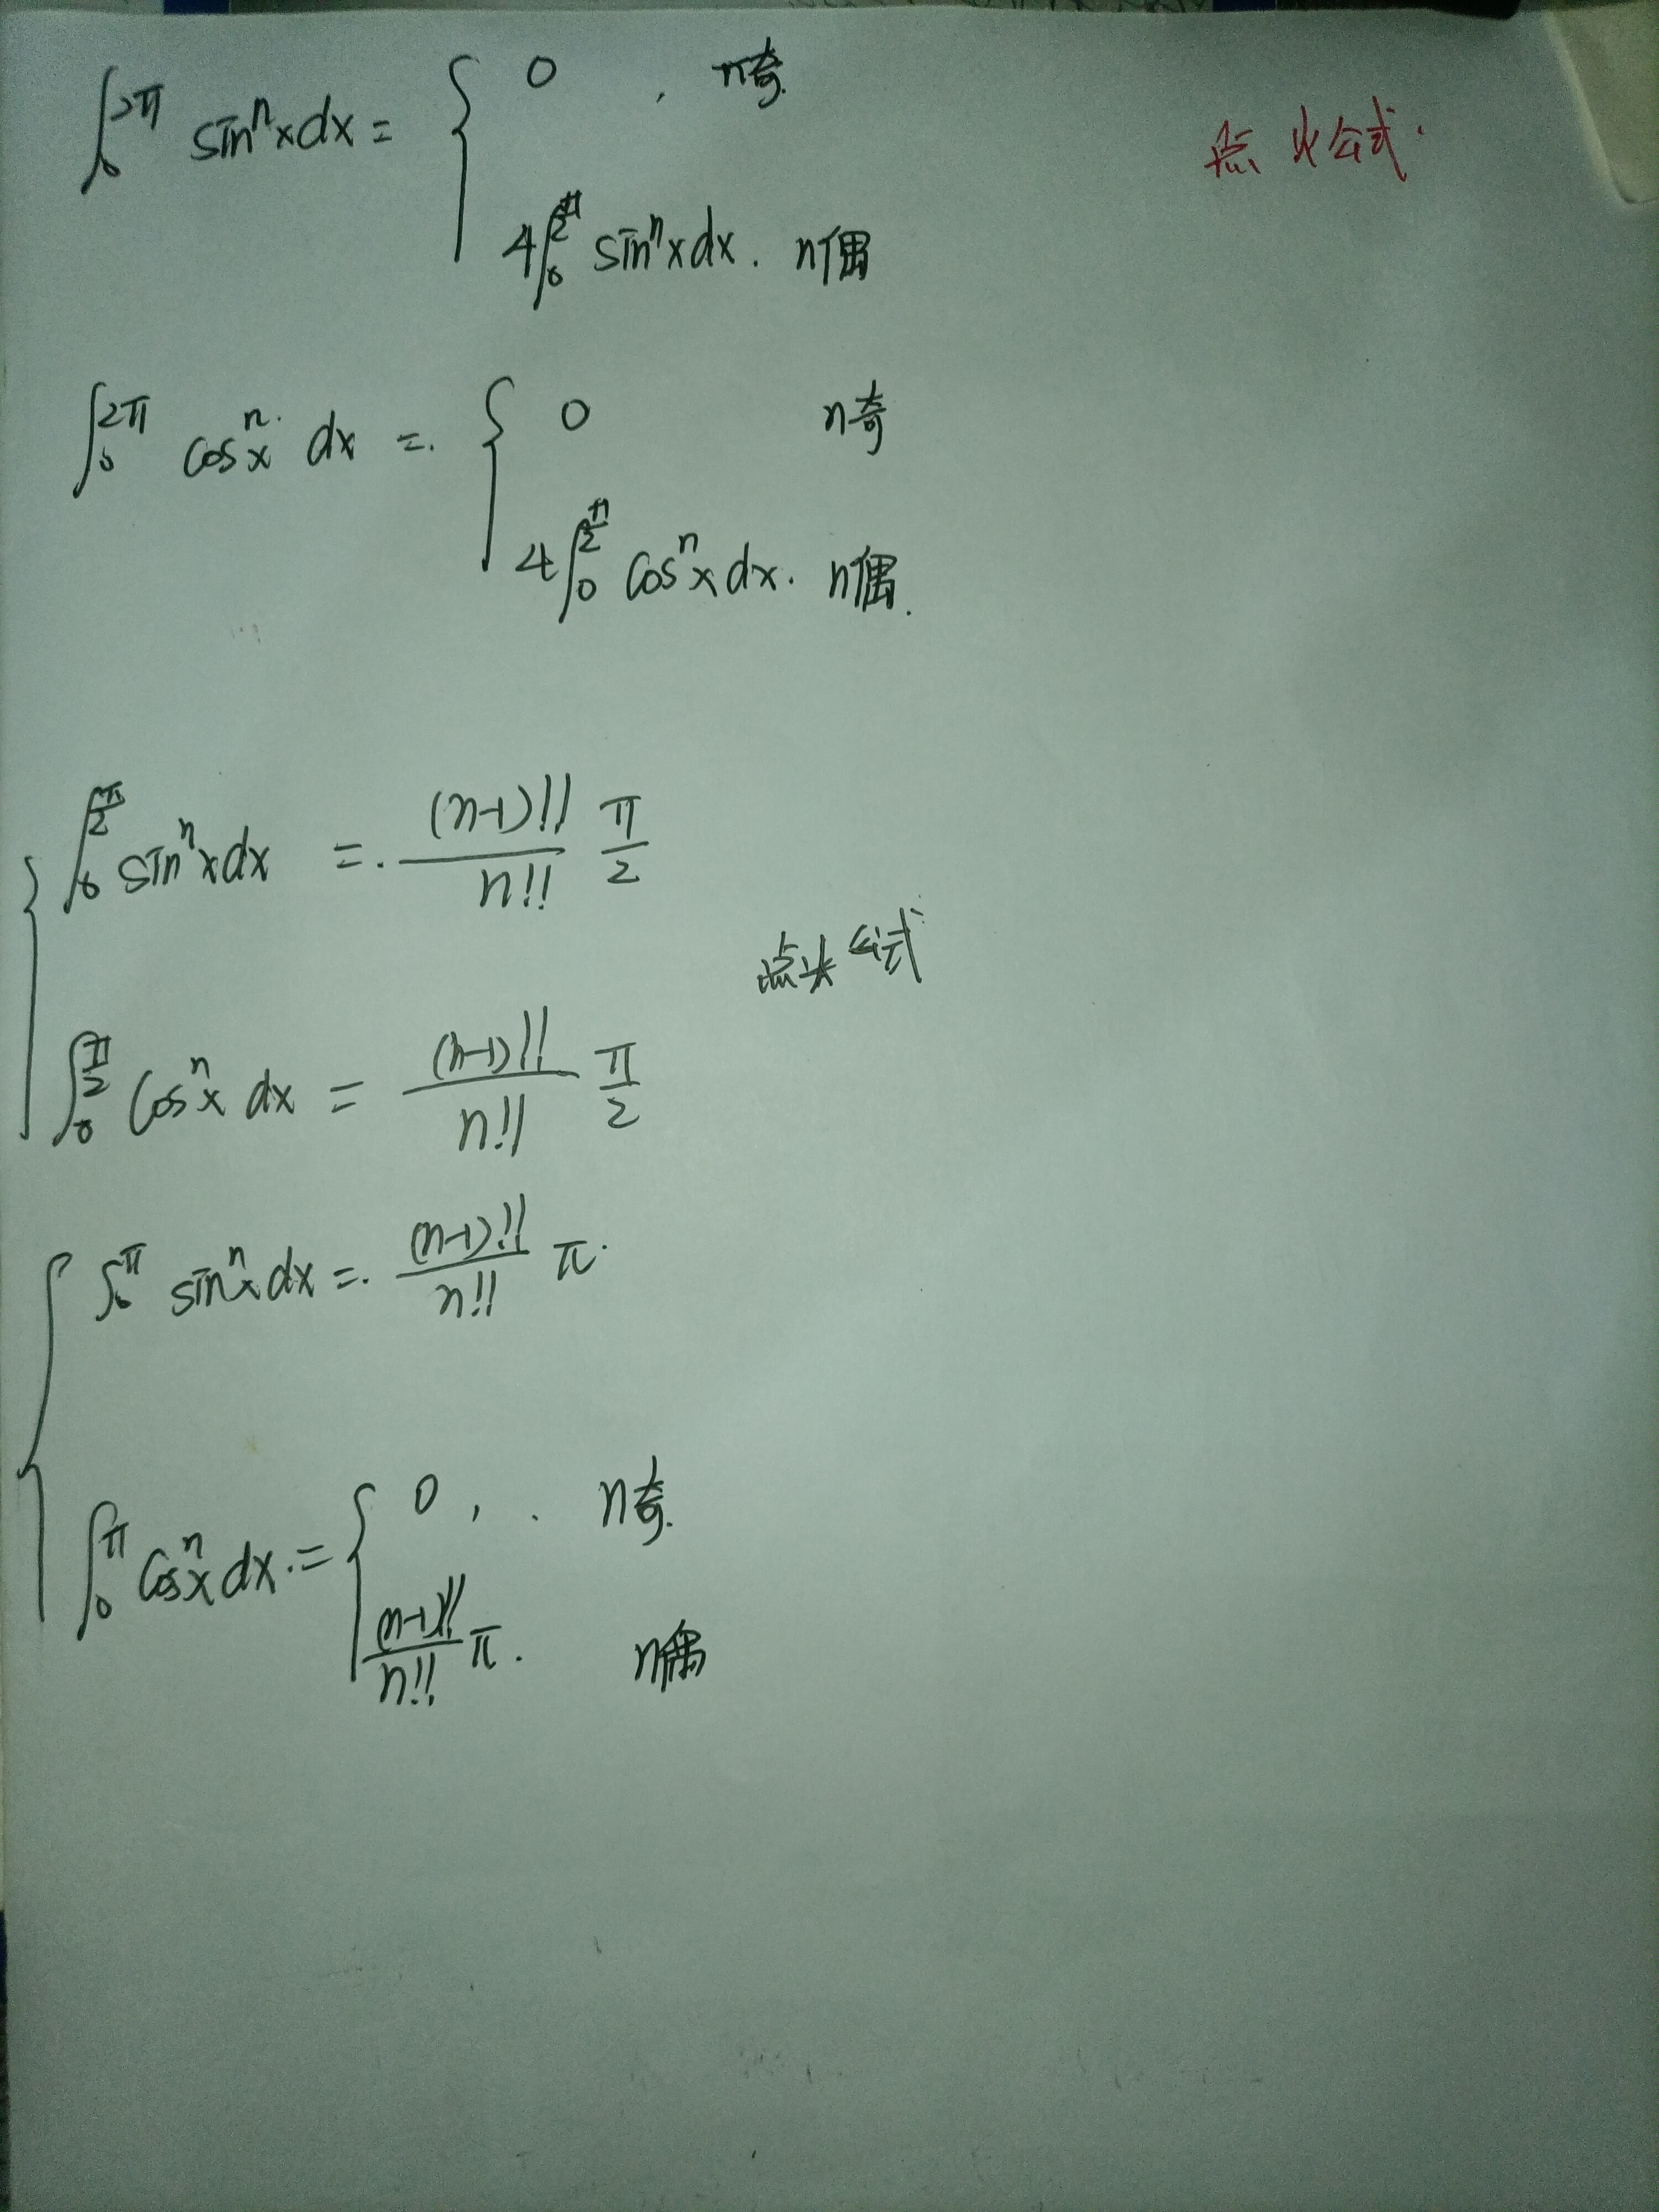 ∫₀^{2π} sinⁿx dx = { 0 , n奇.
点火公式.
4∫₀^{π/2} sinⁿx dx. n偶
∫₀^{2π} cosⁿx dx =. { 0 n奇
4∫₀^{π/2} cosⁿx dx. n偶.
{ ∫₀^{π/2} sinⁿx dx =. (n-1)!!/n!! π/2
点火公式
∫₀^{π/2} cosⁿx dx = (n-1)!!/n!! π/2
{ ∫₀^{π} sinⁿx dx =. (n-1)!!/n!! π.
∫₀^{π} cosⁿx dx. = { 0 , . n奇.
(n-1)!!/n!! π. n偶